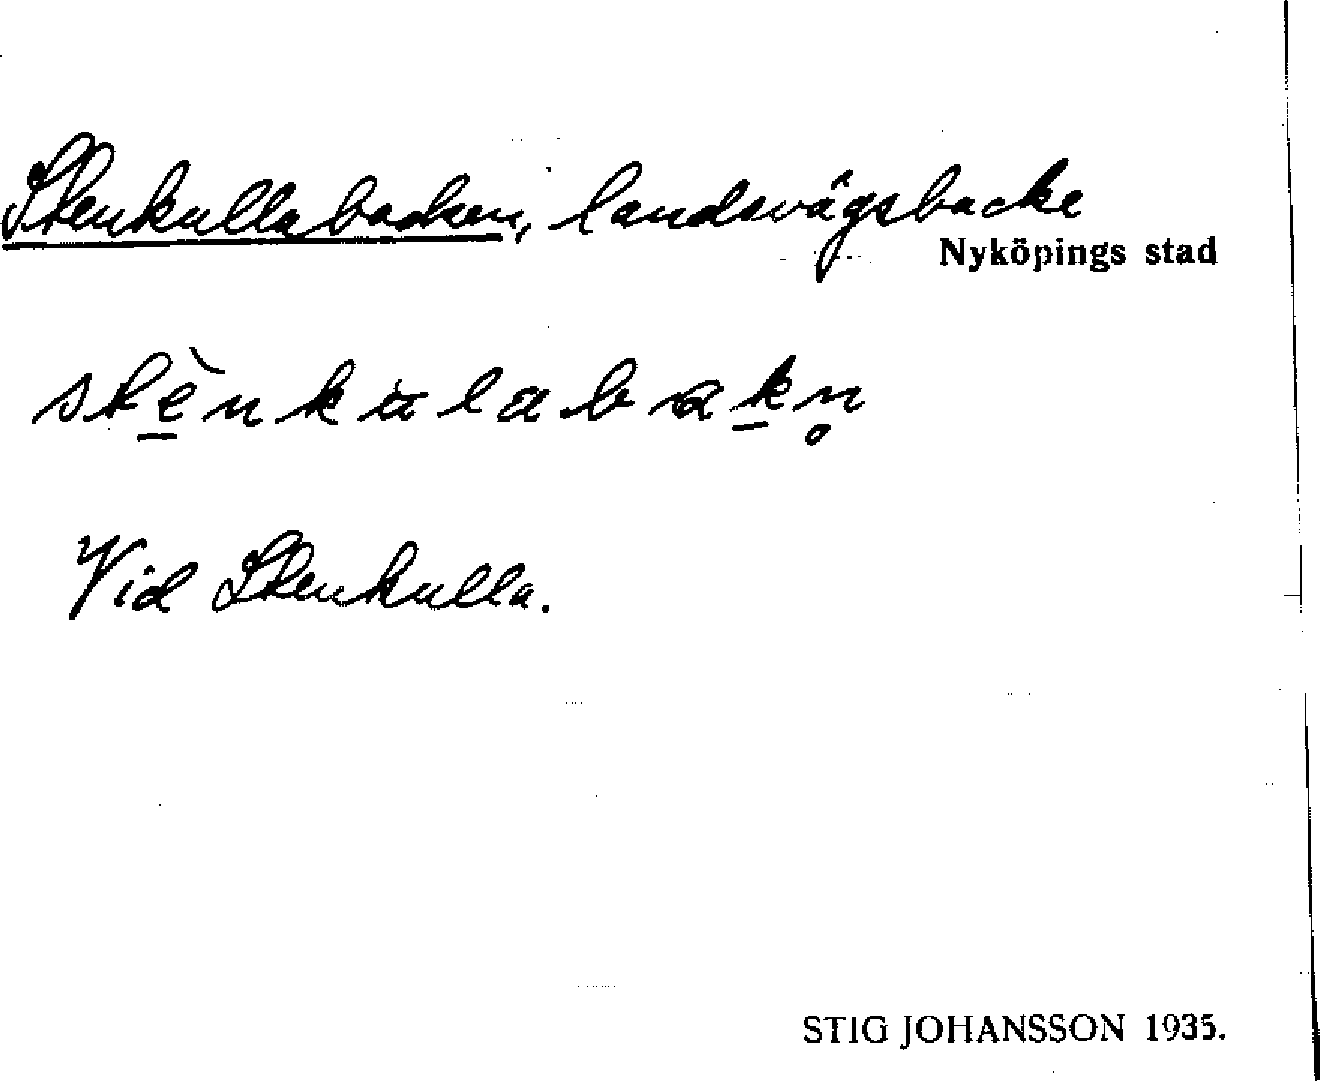 Stenkullabacken, landsvägsbacke
Nyköpings stad
stè̠nkulabak̠n̥
Vid Stenkulla.
STIG JOHANSSON 1935.